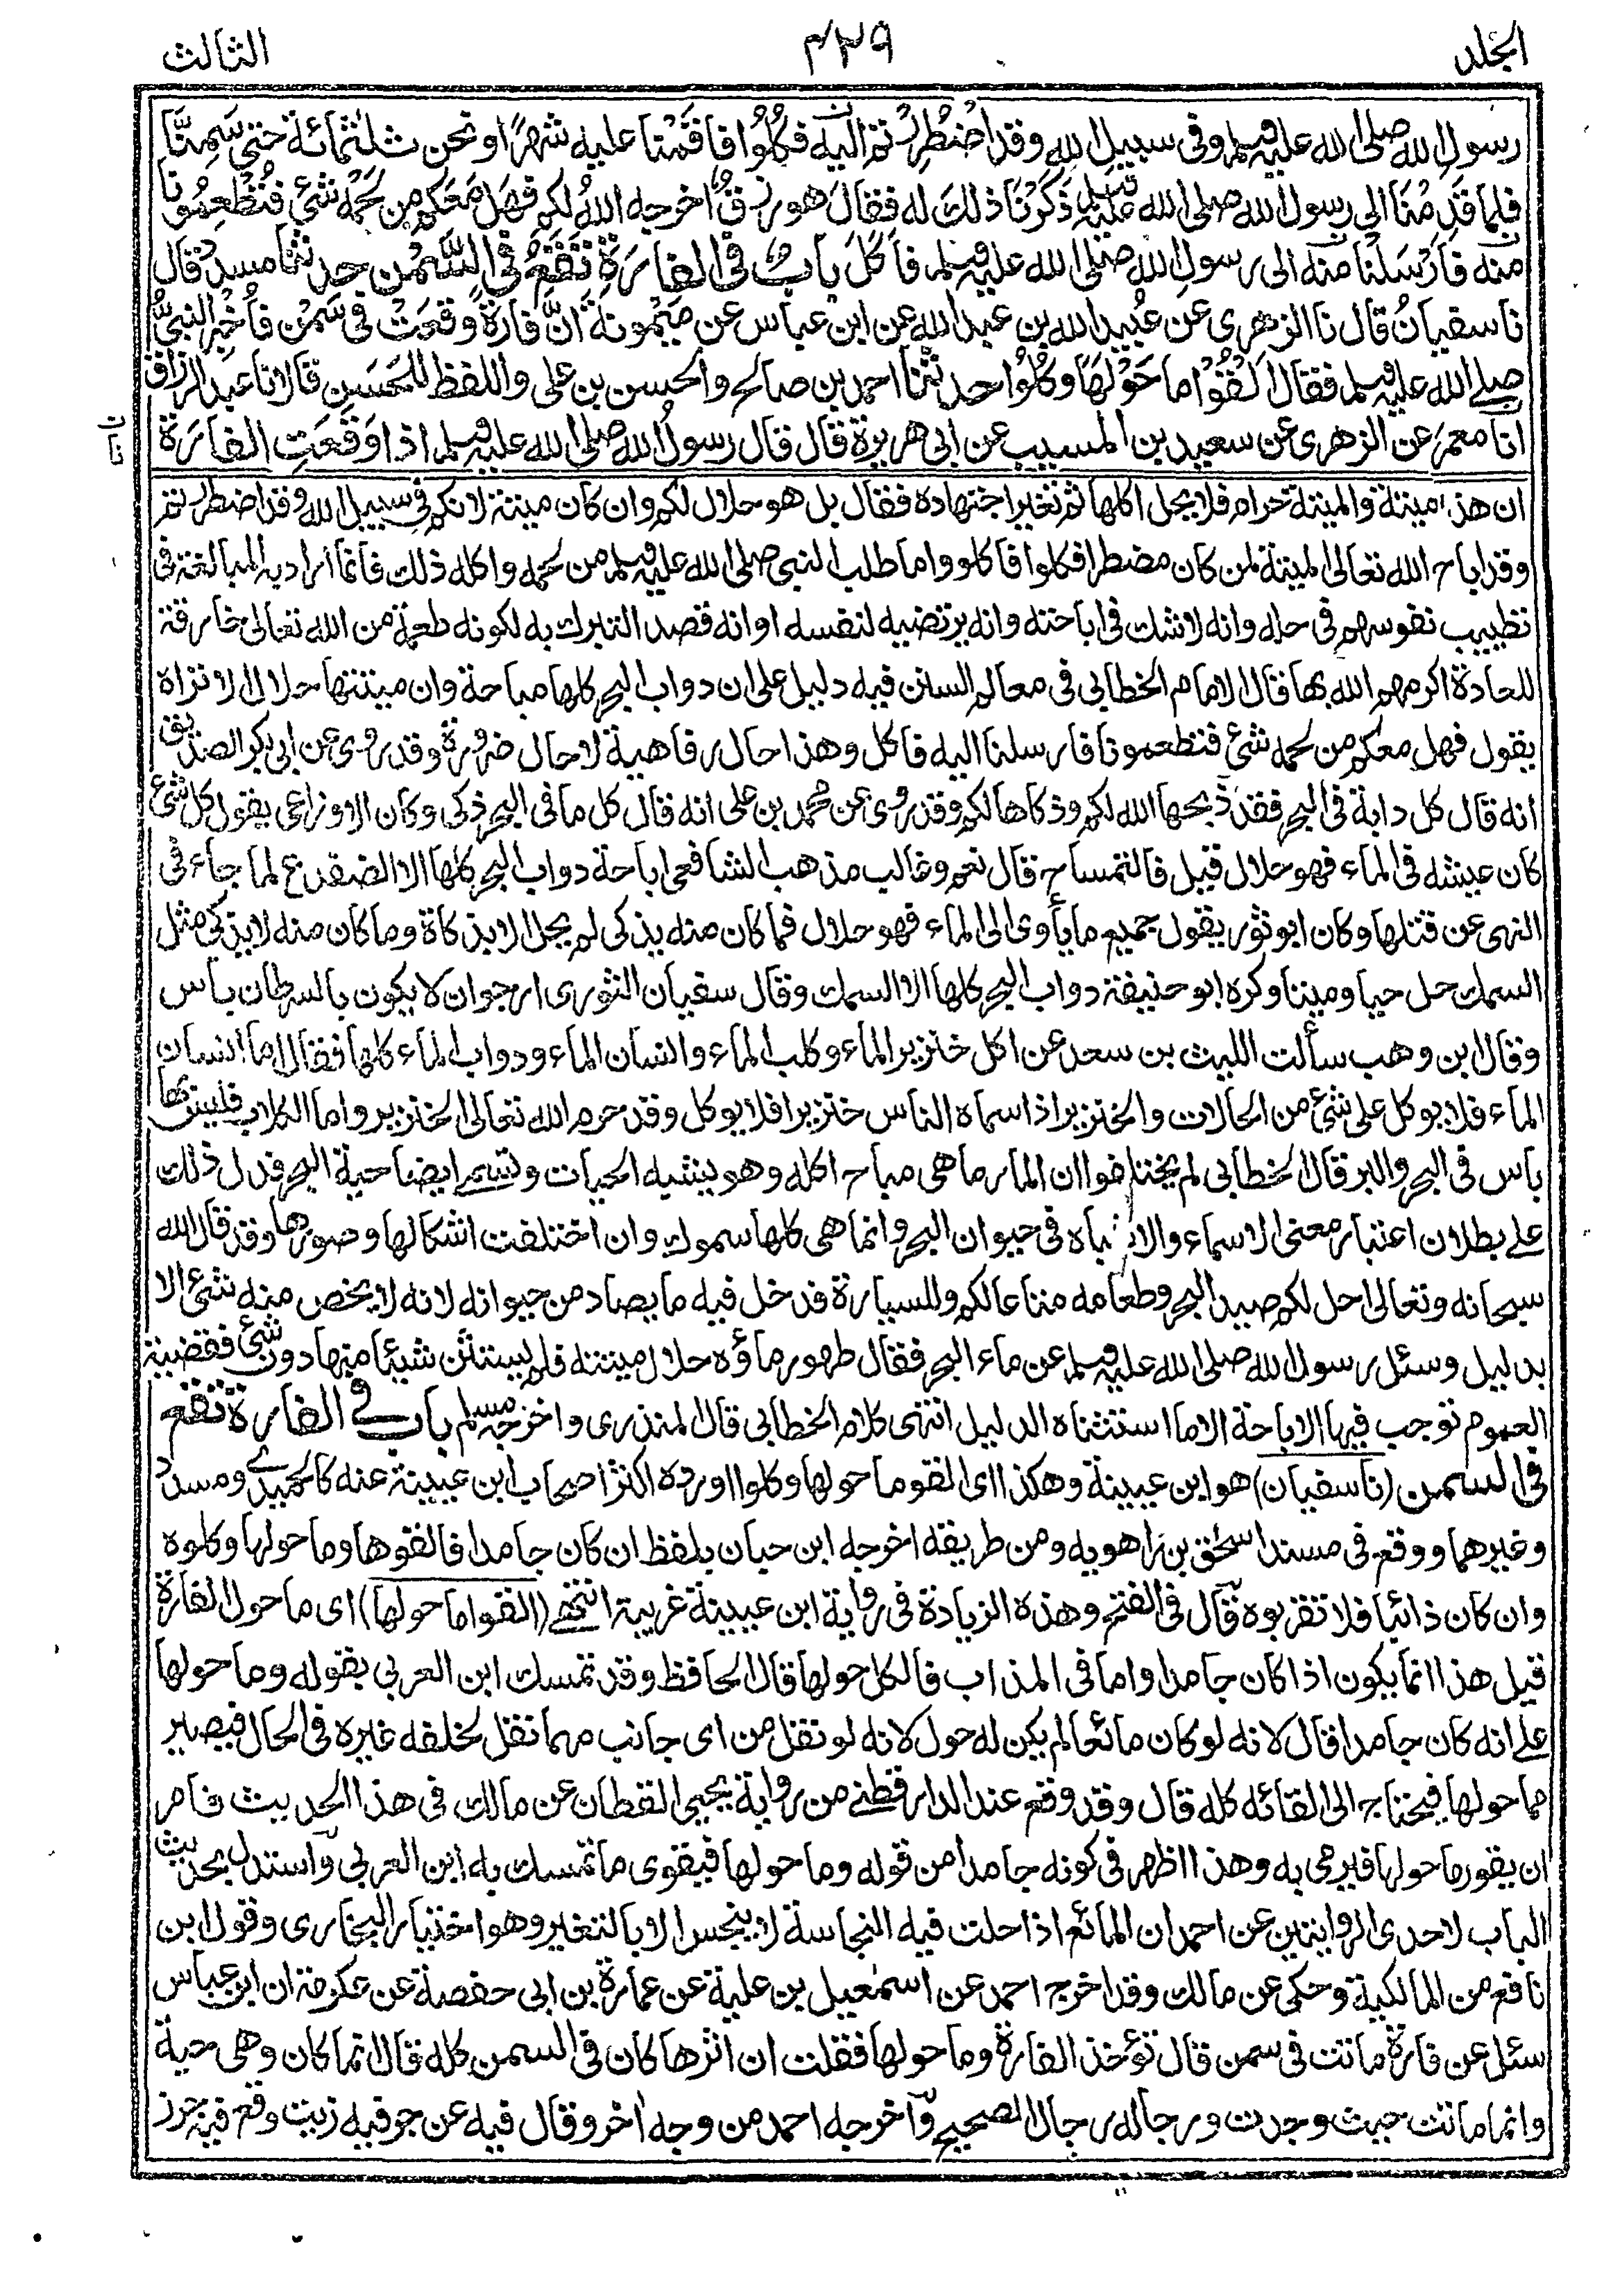 المجلد ٤٣٩ الثالث
رسول الله صلى الله عليه وسلم وفى سبيل الله وقد اضْطُرِرْتم اليه فكُلُوْا فاقَمْنا عليه شهرًا ونحن ثلثمائة حتى سَمِنَّا
فلما قَدِمْنَا الى رسول الله صلى الله عليه وسلم ذَكَرْنَا ذلك له فقال هو رزقٌ اخرجه اللهُ لكم فهَل مَعَكم من لَحْمه شئ فتُطْعِمُونا
منه فاَرْسَلْنا منه الى رسول الله صلى الله عليه وسلم فاَكَلَ بابٌ فى الفارَةِ تَقَعُ فى السَّمْن حدثنا مسددٌ قال
نا سفيانُ قال نا الزهرى عن عُبيد الله بن عبد الله عن ابن عباس عن مَيْمونةَ اَنَّ فارةً وقعَتْ فى سَمْن فاُخْبِرَ النبىُّ
صلى الله عليه وسلم فقال اَلْقُوْا ما حَوْلَها وكُلُوْا حدثنا احمد بن صالح والحسن بن على واللفظ للحَسَن قالا نا عبد الرزاق
انا معمرٌ عن الزهرى عن سعيد بن المسيب عن ابى هريرة قال قال رسولُ الله صلى الله عليه وسلم اذا وَقَعَتِ الفارَةُ
نا ن
ان هذا ميتة والميتة حرام فلا يحل اكلها ثم تغير اجتهاده فقال بل هو حلال لكم وان كان ميتة لانكم فى سبيل الله وقد اضطررتم
وقد اباح الله تعالى الميتة لمن كان مضطرا فكلوا فاكلوا واما طلب النبى صلى الله عليه وسلم من لحمه واكله ذلك فانما اراد به المبالغة فى
تطييب نفوسهم فى حله وانه لا شك فى اباحته وانه يرتضيه لنفسه او انه قصد التبرك به لكونه طعمة من الله تعالى خارقة
للعادة اكرمهم الله بها قال الامام الخطابى فى معالم السنن فيه دليل على ان دواب البحر كلها مباحة وان ميتتها حلال الا تراه
يقول فهل معكم من لحمه شئ فتطعمونا فارسلنا اليه فاكل وهذا حال رفاهية لا حال ضرورة وقد روى عن ابى بكر الصديق
انه قال كل دابة فى البحر فقد ذبحها الله لكم وذكاها لكم وقد روى عن محمد بن على انه قال كل ما فى البحر ذكى وكان الاوزاعى يقول كل شئ
كان عيشه فى الماء فهو حلال قيل فالتمساح قال نعم وغالب مذهب الشافعى اباحة دواب البحر كلها الا الضفدع لما جاء فى
النهى عن قتلها وكان ابو ثور يقول جميع ما يأوى الى الماء فهو حلال فما كان منه يذكى لم يحل الا بذكاة وما كان منه لا يذكى مثل
السمك حل حيا وميتا وكره ابو حنيفة دواب البحر كلها الا السمك وقال سفيان الثورى ارجو ان لا يكون بالسرطان باس
وقال ابن وهب سألت الليث بن سعد عن اكل خنزير الماء وكلب الماء وانسان الماء ودواب الماء كلها فقال اما انسان
الماء فلا يوكل على شئ من الحالات والخنزير اذا سماه الناس خنزيرا فلا يوكل وقد حرم الله تعالى الخنزير واما الكلاب فليس بها
باس فى البحر والبر قال الخطابى لم يختلفوا ان المارماهى مباح اكله وهو يشبه الحيات وتسمى ايضا حية البحر فدل ذلك
على بطلان اعتبار معنى الاسماء والاشباه فى حيوان البحر وانما هى كلها سموك وان اختلفت اشكالها وصورها وقد قال الله
سبحانه وتعالى احل لكم صيد البحر وطعامه متاعا لكم وللسيارة فدخل فيه ما يصاد من حيوانه لانه لا يخص منه شئ الا
بدليل وسئل رسول الله صلى الله عليه وسلم عن ماء البحر فقال طهور ماؤه حلال ميتته فلم يستثن شيئا منها دون شئ فقضية
العموم توجب فيها الاباحة الا ما استثناه الدليل انتهى كلام الخطابى قال المنذرى واخرجه مسلم باب فى الفارة تقع
فى السمن (نا سفيان) هو ابن عيينة وهكذا اى القوما حولها وكلوا اورده اكثر اصحاب ابن عيينة عنه كالحميدى ومسدد
وغيرهما ووقع فى مسند اسحٰق بن راهويه ومن طريقه اخرجه ابن حبان بلفظ ان كان جامدا فالقوها وما حولها وكلوه
وان كان ذائبا فلا تقربوه قال فى الفتح وهذه الزيادة فى رواية ابن عيينة غريبة انتهى (القوا ما حولها) اى ما حول الفارة
قيل هذا انما يكون اذا كان جامدا واما فى المذاب فالكل حولها قال الحافظ وقد تمسك ابن العربى بقوله وما حولها
على انه كان جامدا قال لانه لو كان مائعا لم يكن له حول لانه لو نقل من اى جانب مهما نقل لخلفه غيره فى الحال فيصير
مما حولها فيحتاج الى القائه كله قال وقد وقع عند الدارقطنى من رواية يحيى القطان عن مالك فى هذا الحديث فامر
ان يقور ما حولها فيرمى به وهذا اظهر فى كونه جامدا من قوله وما حولها فيقوى ما تمسك به ابن العربى واستدل بحديث
الباب لاحدى الروايتين عن احمد ان المائع اذا حلت فيه النجاسة لا ينجس الا بالتغير وهو اختيار البخارى وقول ابن
نافع من المالكية وحكى عن مالك وقد اخرج احمد عن اسمٰعيل بن علية عن عمارة بن ابى حفصة عن عكرمة ان ابن عباس
سئل عن فارة ماتت فى سمن قال تؤخذ الفارة وما حولها فقلت ان اثرها كان فى السمن كله قال انما كان وهى حية
وانما ماتت حيث وجدت ورجاله رجال الصحيح واخرجه احمد من وجه اٰخر وقال فيه عن جر فيه زيت وقع فيه جرذ